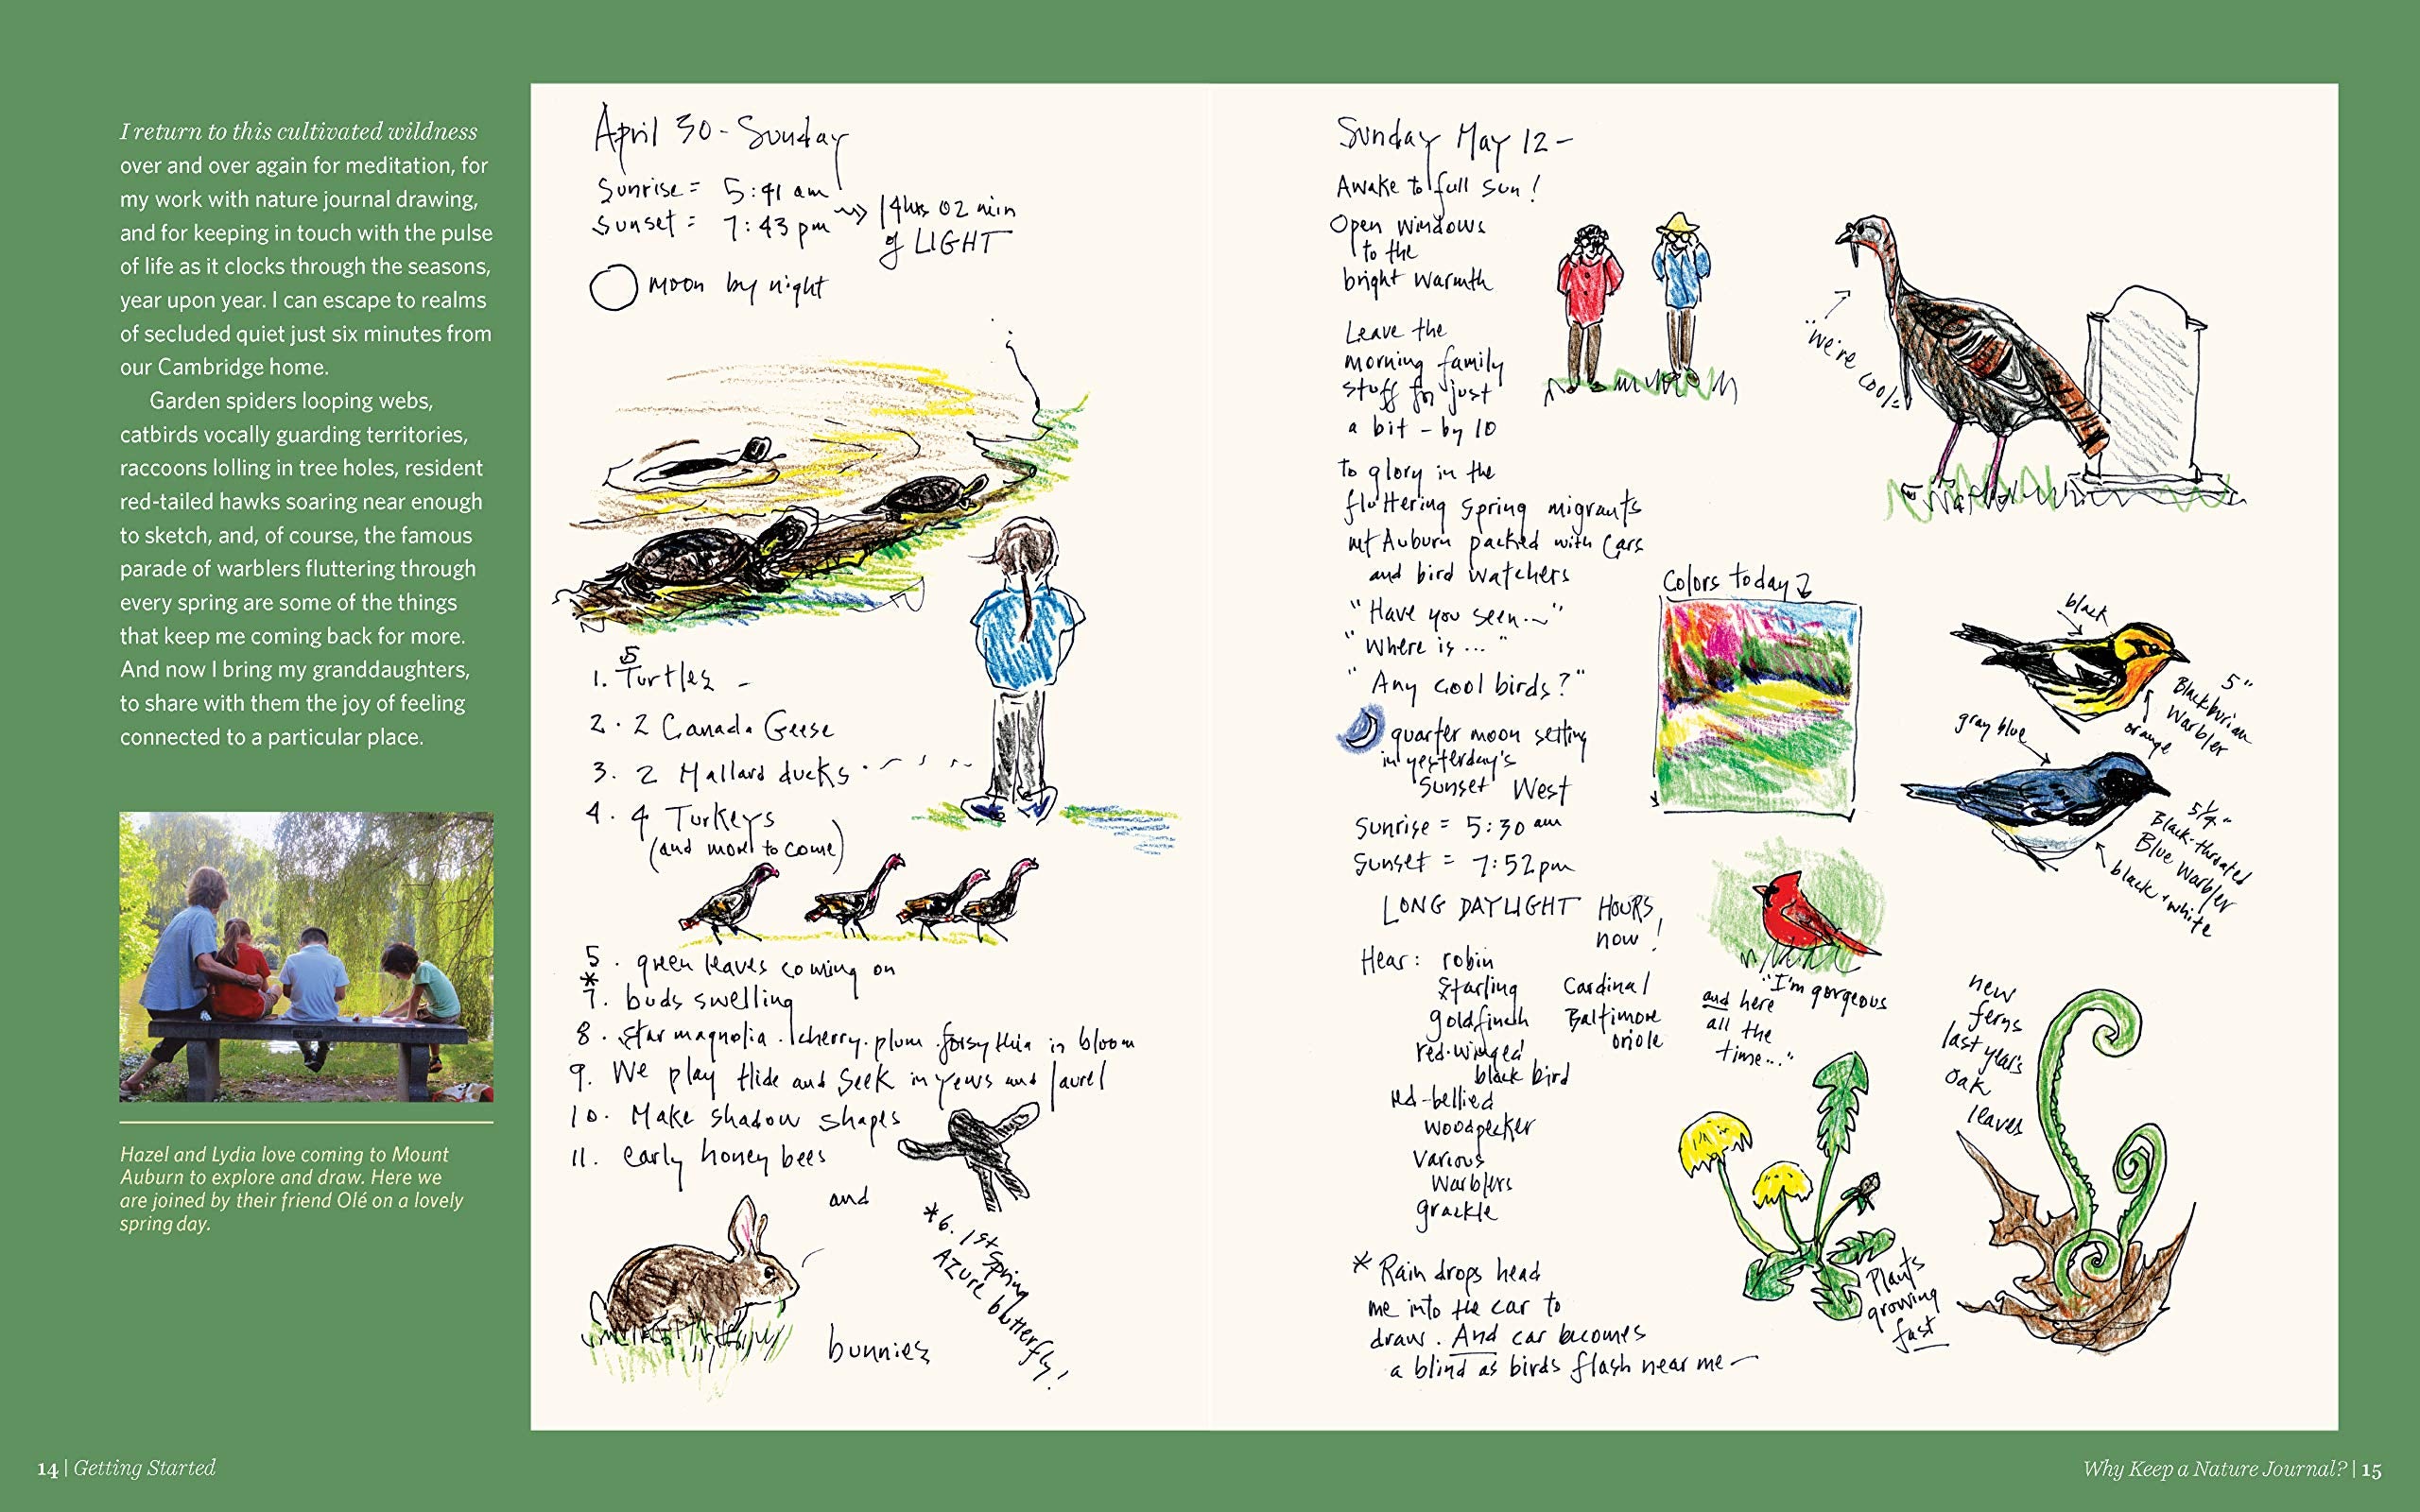 I return to this cultivated wildness
over and over again for meditation, for
my work with nature journal drawing,
and for keeping in touch with the pulse
of life as it clocks through the seasons,
year upon year. I can escape to realms
of secluded quiet just six minutes from
our Cambridge home.
Garden spiders looping webs,
catbirds vocally guarding territories,
raccoons lolling in tree holes, resident
red-tailed hawks soaring near enough
to sketch, and, of course, the famous
parade of warblers fluttering through
every spring are some of the things
that keep me coming back for more.
And now I bring my granddaughters,
to share with them the joy of feeling
connected to a particular place.
Hazel and Lydia love coming to Mount
Auburn to explore and draw. Here we
are joined by their friend Olé on a lovely
spring day.
14 | Getting Started
April 30 - Sunday
Sunrise = 5:41 am
Sunset = 7:43 pm
14 hrs 02 min
of LIGHT
moon by night
5
1. Turtles -
2. 2 Canada Geese
3. 2 Mallard ducks
4. 4 Turkeys
(and more to come)
5. green leaves coming on
*
7. buds swelling
8. Star magnolia. cherry. plum. forsythia in bloom
9. We play Hide and Seek in yews and laurel
10. Make shadow shapes
11. early honey bees
and
bunnies
*6. 1st Spring
AZure butterfly!
Sunday May 12 -
Awake to full sun!
Open windows
to the
bright warmth
Leave the
morning family
stuff for just
a bit - by 10
to glory in the
fluttering spring migrants
Mt Auburn packed with cars
and bird watchers
"Have you seen..."
"Where is ..."
"Any cool birds?"
quarter moon setting
in yesterday's
Sunset West
Sunrise = 5:30 am
Sunset = 7:52 pm
LONG DAYLIGHT HOURS
now!
Hear: robin
Starling
goldfinch
red-winged
black bird
red-bellied
woodpecker
Various
Warblers
grackle
Cardinal
Baltimore
oriole
* Rain drops head
me into the car to
draw. And car becomes
a blind as birds flash near me -
"we're cool"
Colors today
black
5"
Blackburian
Warbler
orange
gray blue
5 1/4"
Black-throated
Blue Warbler
black + white
"I'm gorgeous
and here
all the
time..."
new
ferns
last year's
oak
leaves
Plants
growing
fast
Why Keep a Nature Journal? | 15